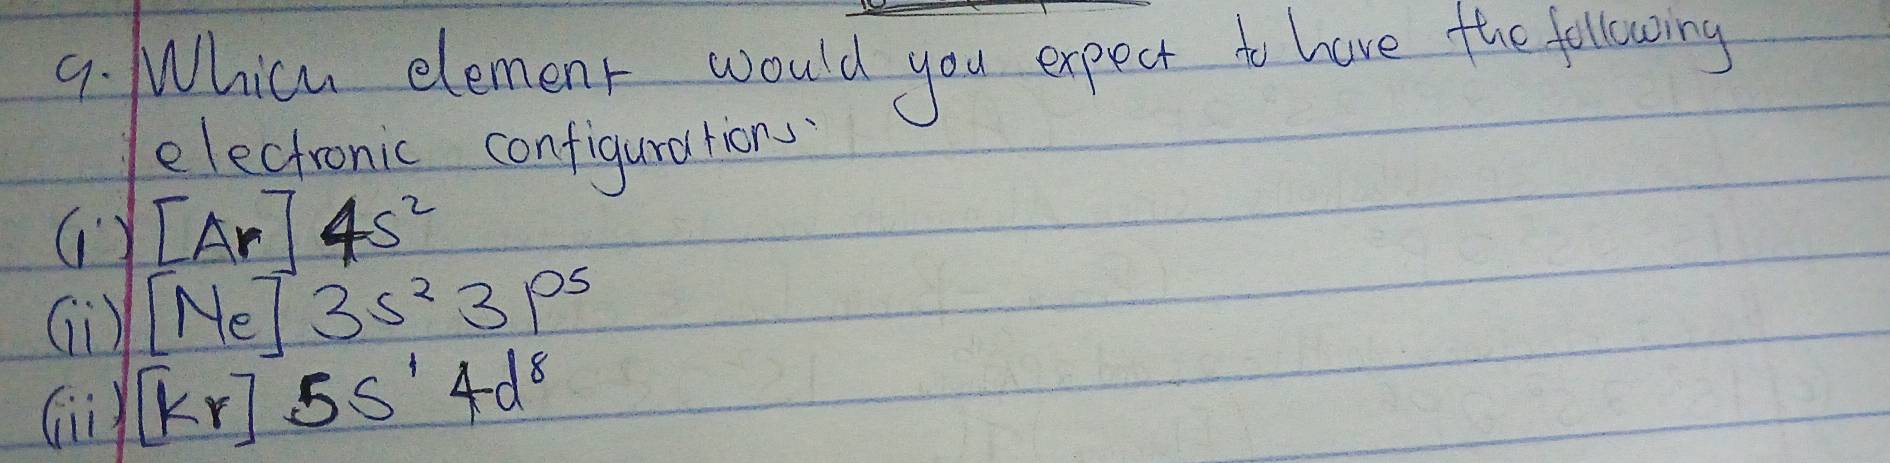 9. Which element would you expect to have the following
electronic configurations.
(i) [Ar] 4s²
(ii) [Ne] 3s² 3p⁵
(iii) [Kr] 5s¹ 4d⁸